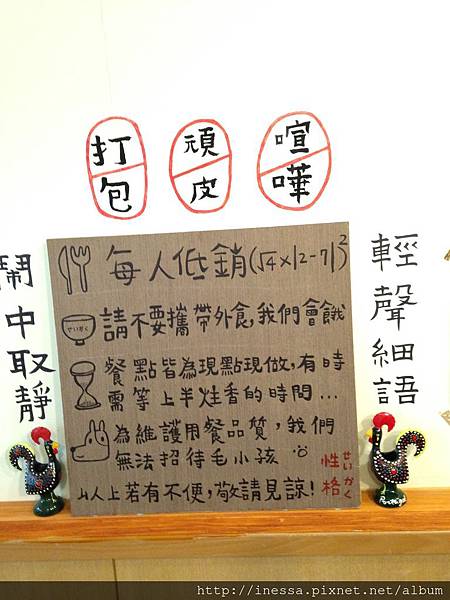 打包
頑皮
喧嘩
鬧中取靜
每人低銷(√4×|2-7|)²
せいかく
請不要攜帶外食,我們會餓
餐點皆為現點現做,有時
需等上半炷香的時間...
為維護用餐品質,我們
無法招待毛小孩
以上若有不便,敬請見諒!
性格
せいかく
輕聲細語
Portugal
http://inessa.pixnet.net/album